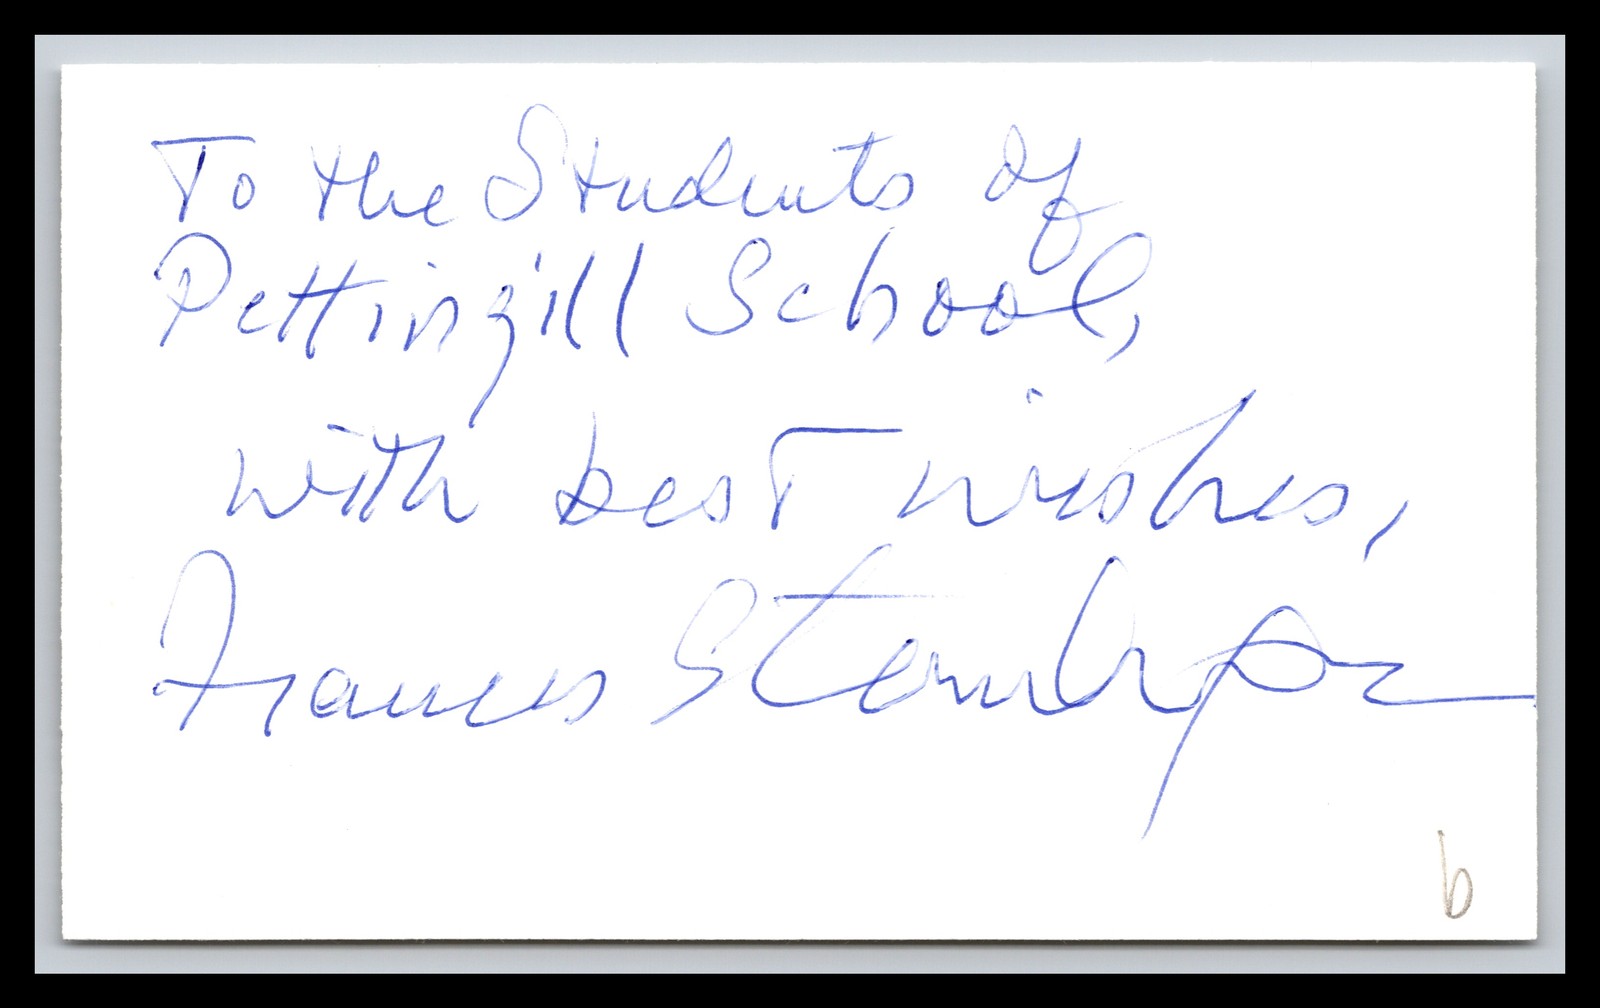 To the Students of
Pettingill School,
with best wishes,
Frances Sternhagen
b